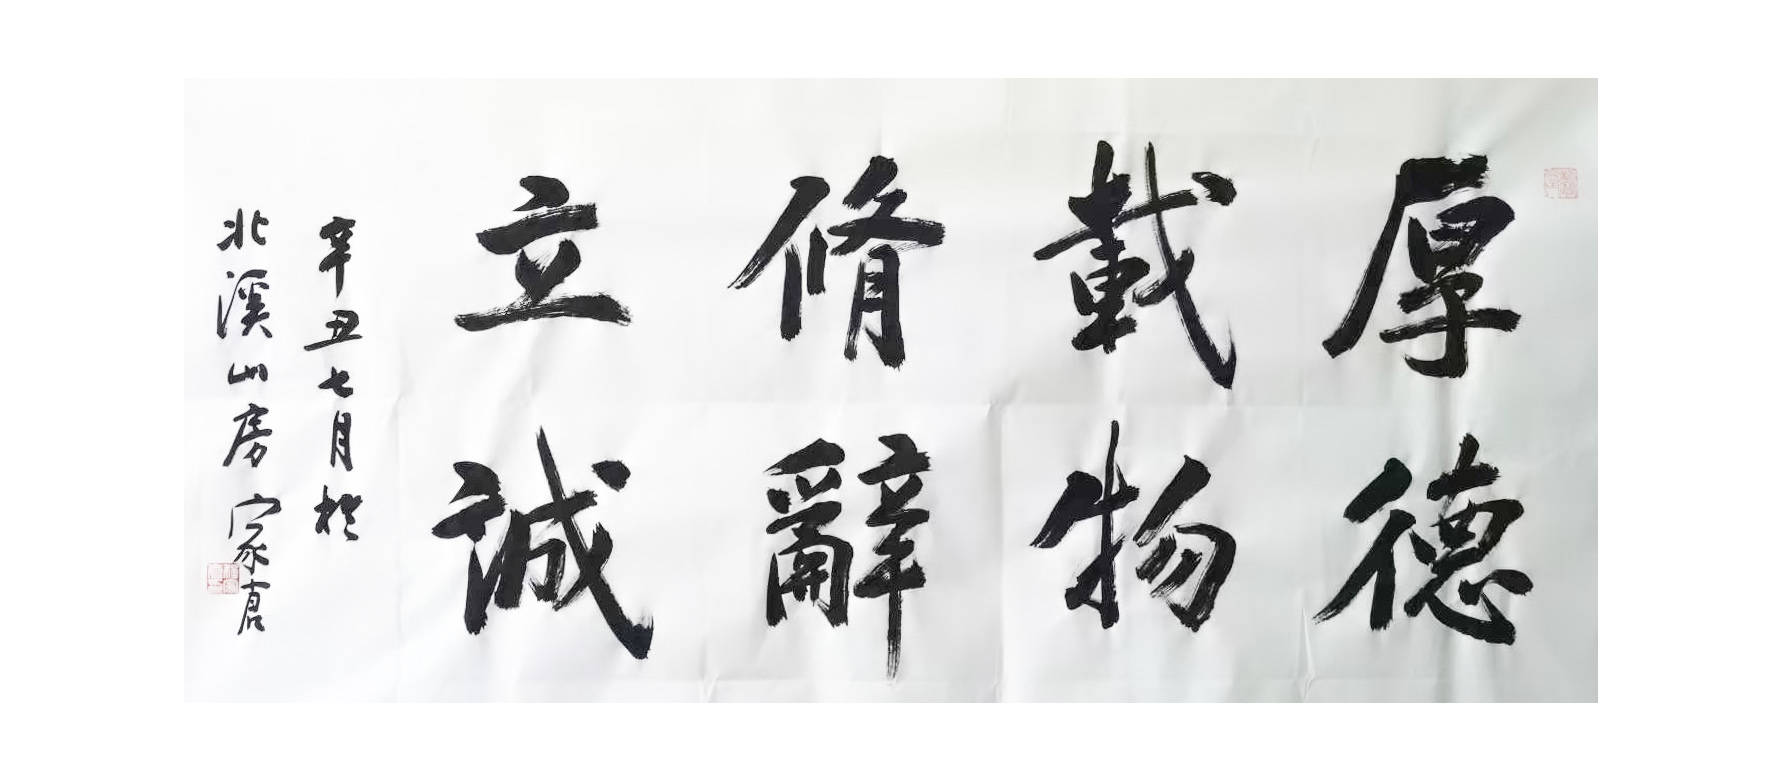 厚德
載物
脩辭
立誠
辛丑七月於
北溪山房家